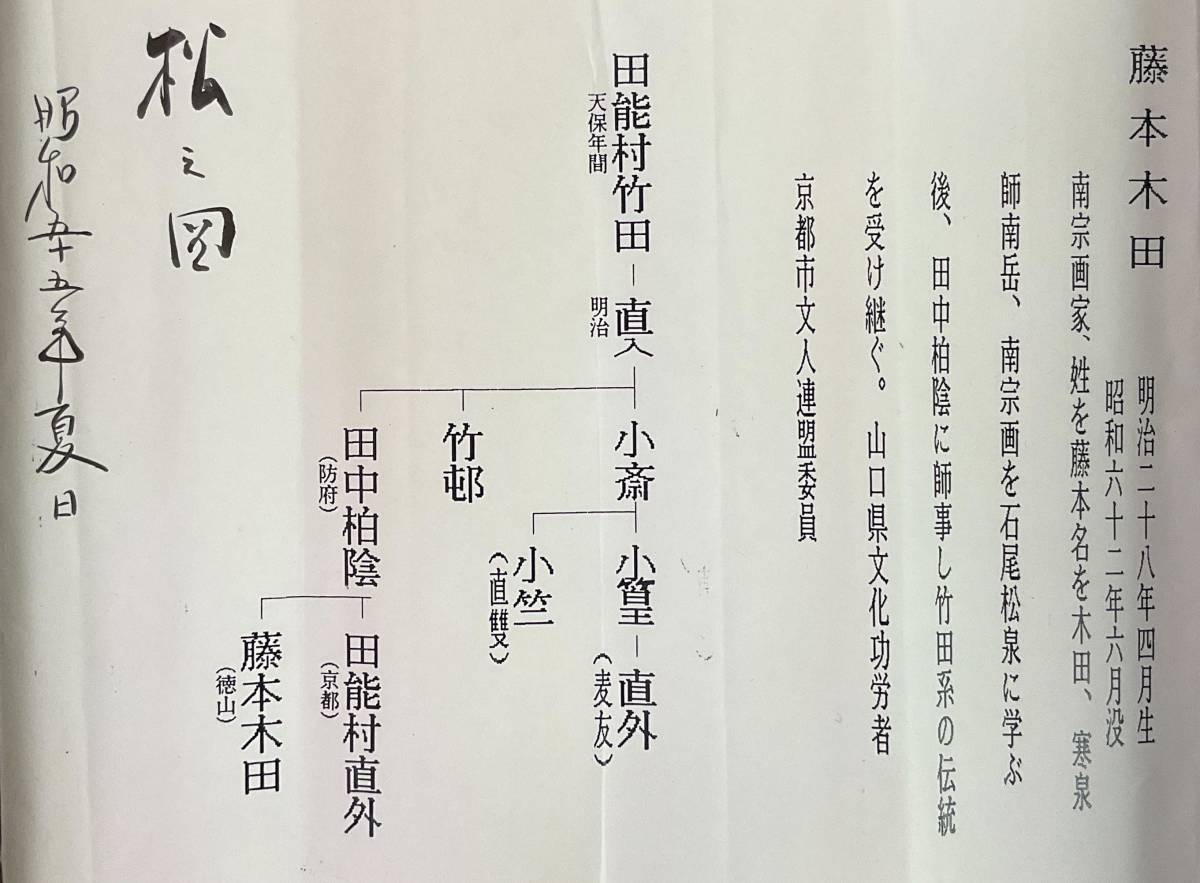 藤本木田
明治二十八年四月生
昭和六十二年六月没
南宗画家、姓を藤本名を木田、寒泉
師南岳、南宗画を石尾松泉に学ぶ
後、田中柏陰に師事し竹田系の伝統
を受け継ぐ。山口県文化功労者
京都市文人連盟委員
田能村竹田―直入
天保年間
明治
小斎
竹邨
田中柏陰
(防府)
小篁―直外
(麦友)
小竺
(直雙)
田能村直外
(京都)
藤本木田
(徳山)
松之図
昭和五十五年夏日